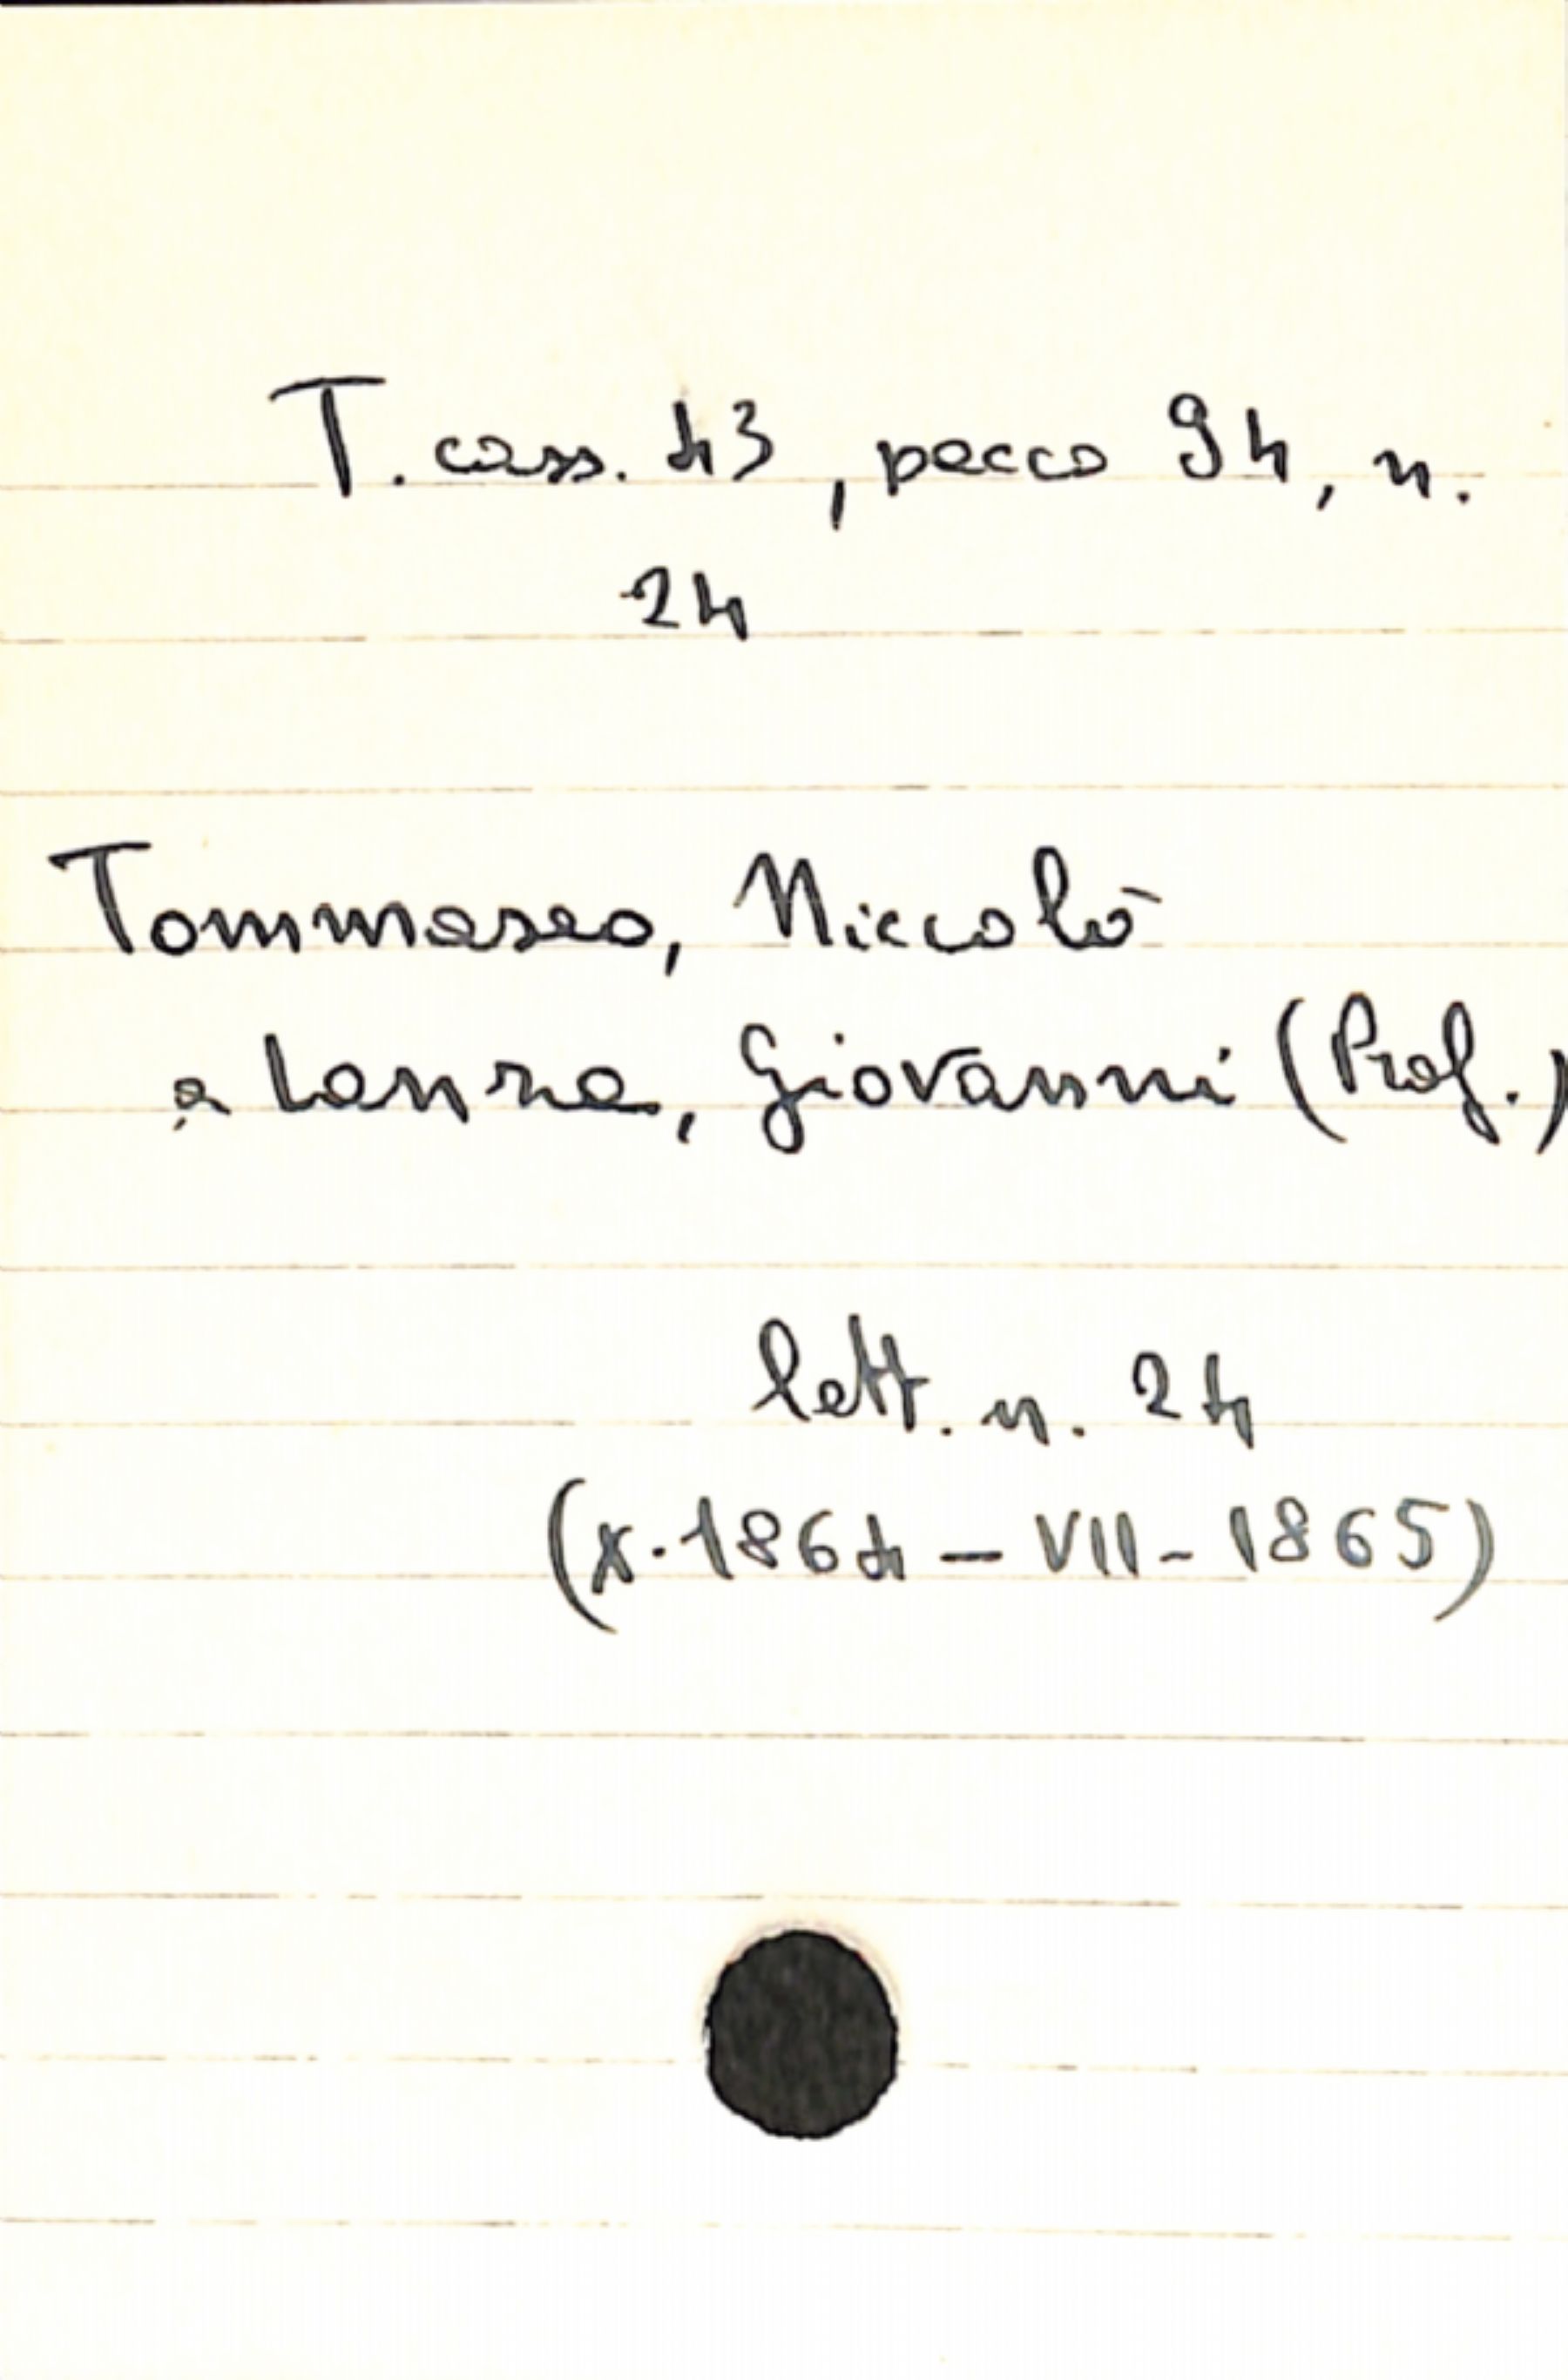 T. cass. 43, pacco 94, n.
24
Tommaseo, Niccolò
a Lanza, Giovanni (Prof.)
lett. n. 24
(X.1864 – VII - 1865)